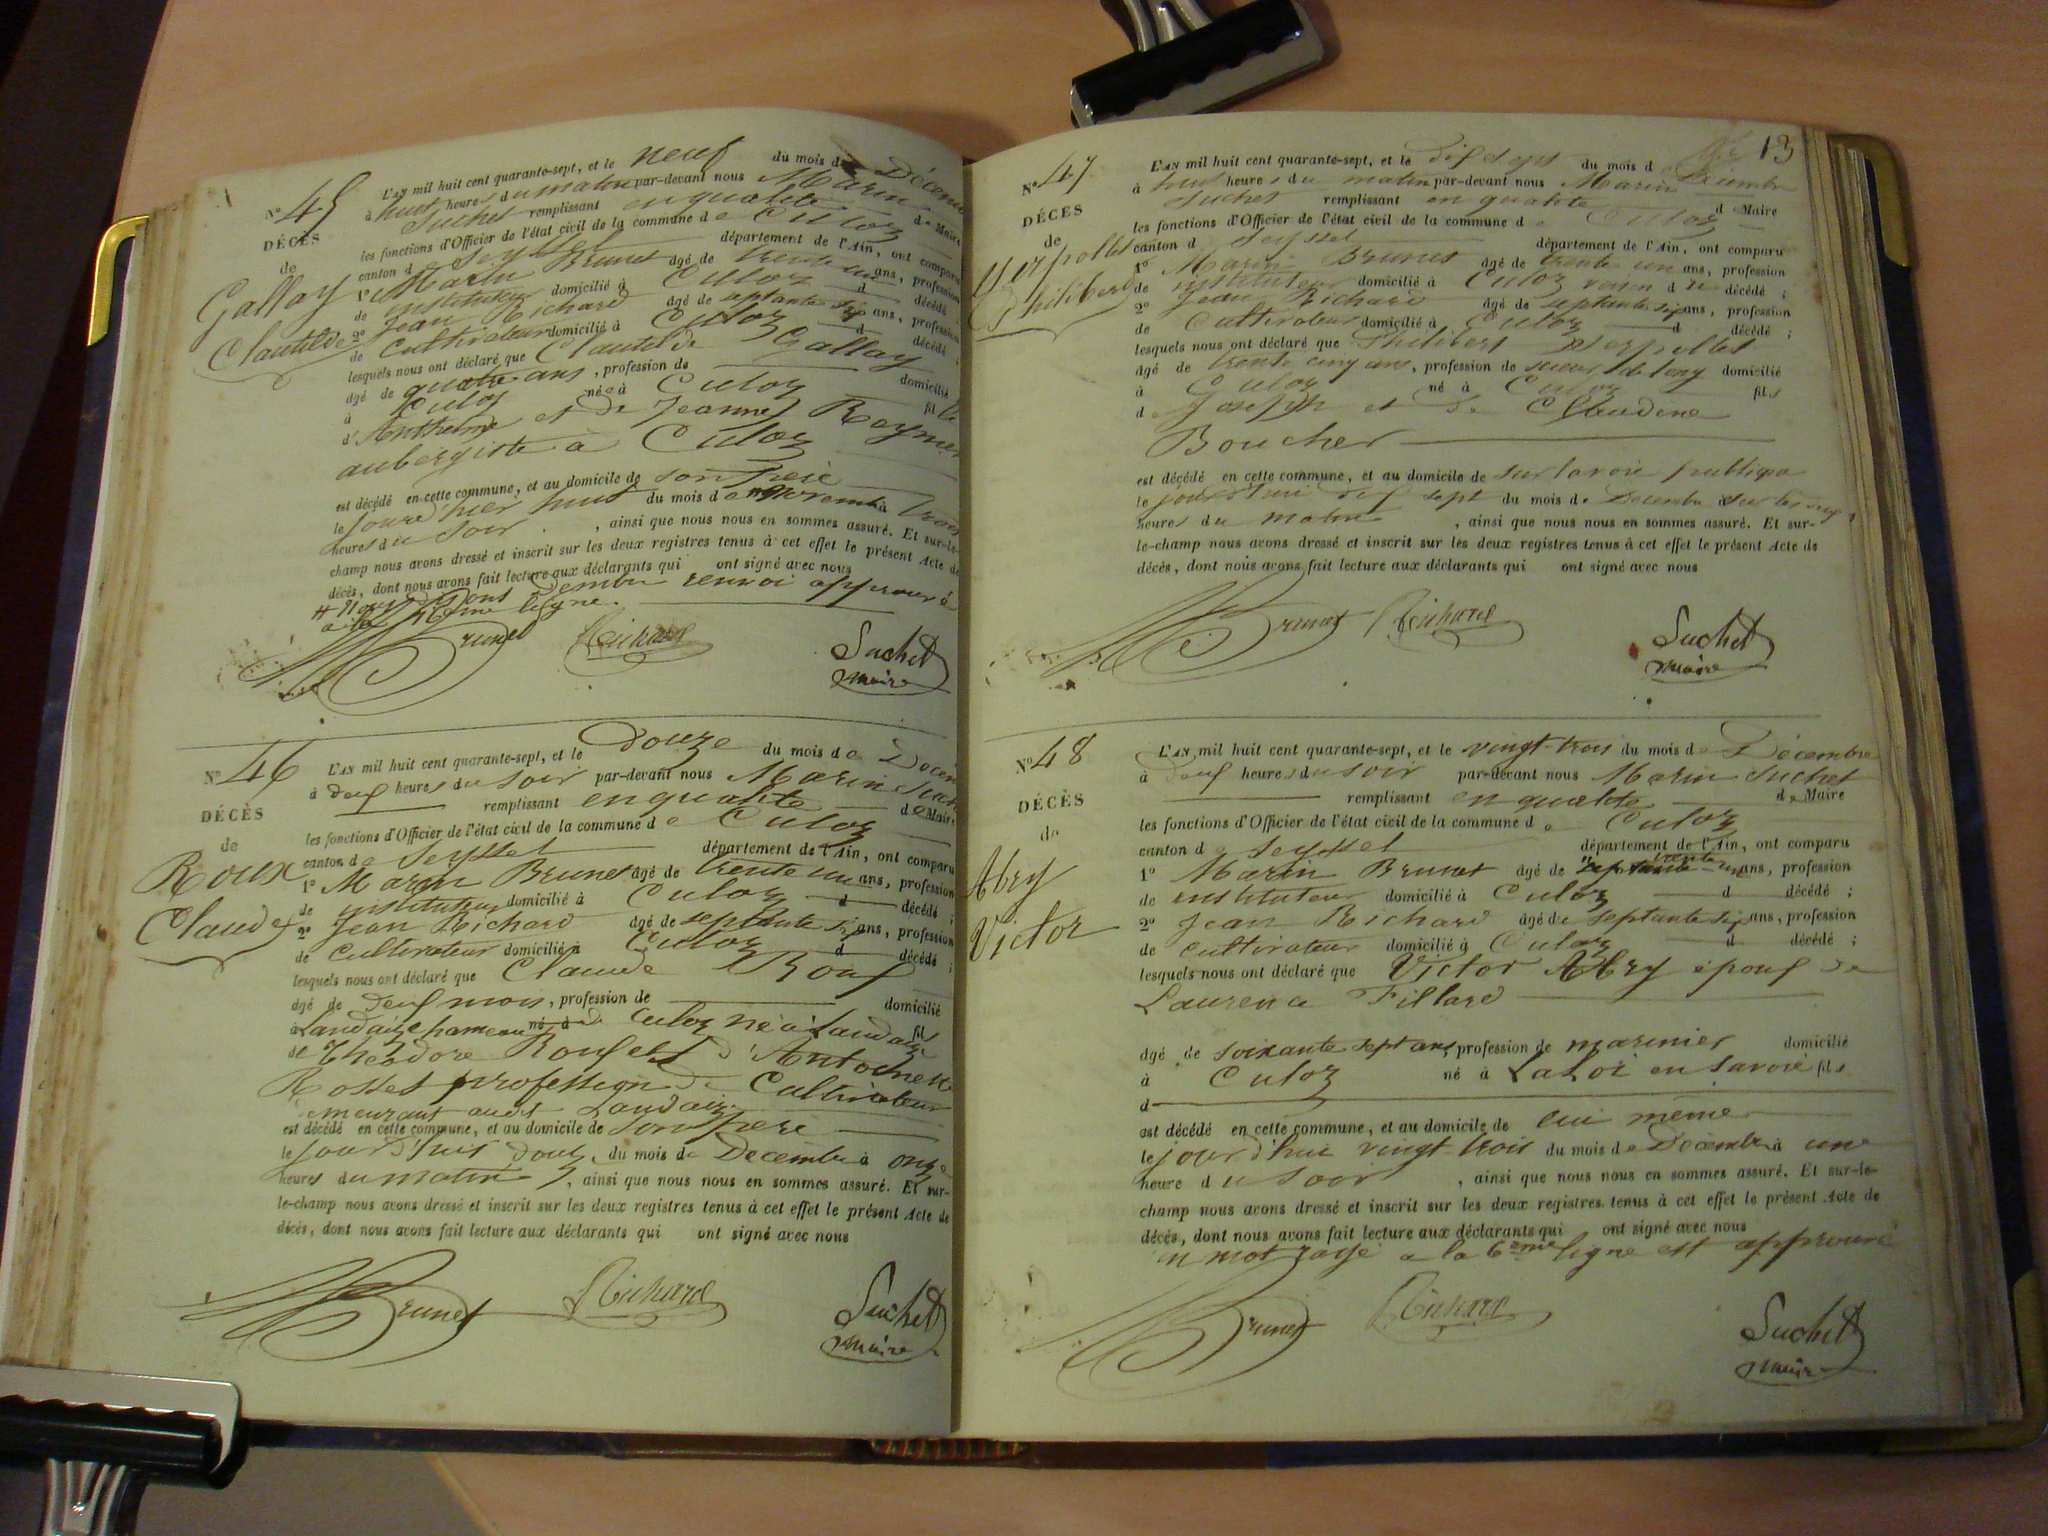 N° 45
DÉCÈS
de
Gallay
Clautilde
L'AN mil huit cent quarante-sept, et le neuf du mois de Décembre
à huit heures du matin par-devant nous Marin
Suchet remplissant en qualité de Maire
les fonctions d'Officier de l'état civil de la commune de Culoz
canton de Seyssel département de l'Ain, ont comparu
1° Marin Brunet âgé de trente un ans, profession
de instituteur domicilié à Culoz d décédé ;
2° Jean Richard âgé de septante six ans, profession
de Cultivateur domicilié à Culoz d décédé ;
lesquels nous ont déclaré que Clautilde Gallay
âgé de quatre ans, profession de domicilié
à Culoz née à Culoz fille
d'Anthelme et de Jeanne Raymon
aubergiste à Culoz
est décédé en cette commune, et au domicile de son père
le jour d'hier huit du mois de à trois
heures du soir, ainsi que nous nous en sommes assuré. Et sur-le-
champ nous avons dressé et inscrit sur les deux registres tenus à cet effet le présent Acte de
décès, dont nous avons fait lecture aux déclarants qui ont signé avec nous
renvoi approuvé
ligne.
Brunet Richard Suchet
maire
N° 46
DÉCÈS
de
Roux
Claude
L'AN mil huit cent quarante-sept, et le douze du mois de Décem
à deux heures du soir par-devant nous Marin Suchet
remplissant en qualité de Maire
les fonctions d'Officier de l'état civil de la commune de Culoz
canton de Seyssel département de l'Ain, ont comparu
1° Marin Brunet âgé de trente un ans, profession
de instituteur domicilié à Culoz d décédé ;
2° Jean Richard âgé de septante six ans, profession
de Cultivateur domicilié à Culoz d décédé ;
lesquels nous ont déclaré que Claude Roux
âgé de deux mois, profession de domicilié
à Landaize hameau né à de Culoz né à Landaize fils
de Théodore Roux et d'Antoinette
Rosset profession de Cultivateur
demeurant audt Landaize
est décédé en cette commune, et au domicile de son père
le jourd'hui douze du mois de Decembre à onze
heures du matin, ainsi que nous nous en sommes assuré. Et sur-
le-champ nous avons dressé et inscrit sur les deux registres tenus à cet effet le présent Acte de
décès, dont nous avons fait lecture aux déclarants qui ont signé avec nous
Brunet Richard Suchet
maire
13
N° 47
DÉCÈS
de
Philibert
L'AN mil huit cent quarante-sept, et le dix sept du mois de Décembre
à huit heures du matin par-devant nous Marin
Suchet remplissant en qualité de Maire
les fonctions d'Officier de l'état civil de la commune de Culoz
canton d Seyssel département de l'Ain, ont comparu
1° Marin Brunet âgé de trente un ans, profession
de instituteur domicilié à Culoz voisin du décédé ;
2° Jean Richard âgé de septante six ans, profession
de Cultivateur domicilié à Culoz d décédé ;
lesquels nous ont déclaré que Philibert
âgé de trente cinq ans, profession de scieur de long domicilié
à Culoz né à Culoz fils
d Joseph et de Claudine
Boucher
est décédé en cette commune, et au domicile de sur la voie publique
le jourd'hui dix sept du mois de Decembre à
heures du matin, ainsi que nous nous en sommes assuré. Et sur-
le-champ nous avons dressé et inscrit sur les deux registres tenus à cet effet le présent Acte de
décès, dont nous avons fait lecture aux déclarants qui ont signé avec nous
Brunet Richard Suchet
maire
N° 48
DÉCÈS
de
Abry
Victor
L'AN mil huit cent quarante-sept, et le vingt-trois du mois de Décembre
à deux heures du soir par-devant nous Marin Suchet
remplissant en qualité de Maire
les fonctions d'Officier de l'état civil de la commune de Culoz
canton de Seyssel département de l'Ain, ont comparu
1° Marin Brunet âgé de trente un ans, profession
de instituteur domicilié à Culoz d décédé ;
2° Jean Richard âgé de septante six ans, profession
de cultivateur domicilié à Culoz d décédé ;
lesquels nous ont déclaré que Victor Abry époux de
Laurence Fillard
âgé de soixante sept ans, profession de marinier domicilié
à Culoz né à en Savoie fils
d
est décédé en cette commune, et au domicile de lui même
le jourd'hui vingt-trois du mois de Décembre à une
heure du soir, ainsi que nous nous en sommes assuré. Et sur-le-
champ nous avons dressé et inscrit sur les deux registres tenus à cet effet le présent Acte de
décès, dont nous avons fait lecture aux déclarants qui ont signé avec nous
un mot rayé a la 6eme ligne est approuvé
Brunet Richard Suchet
maire